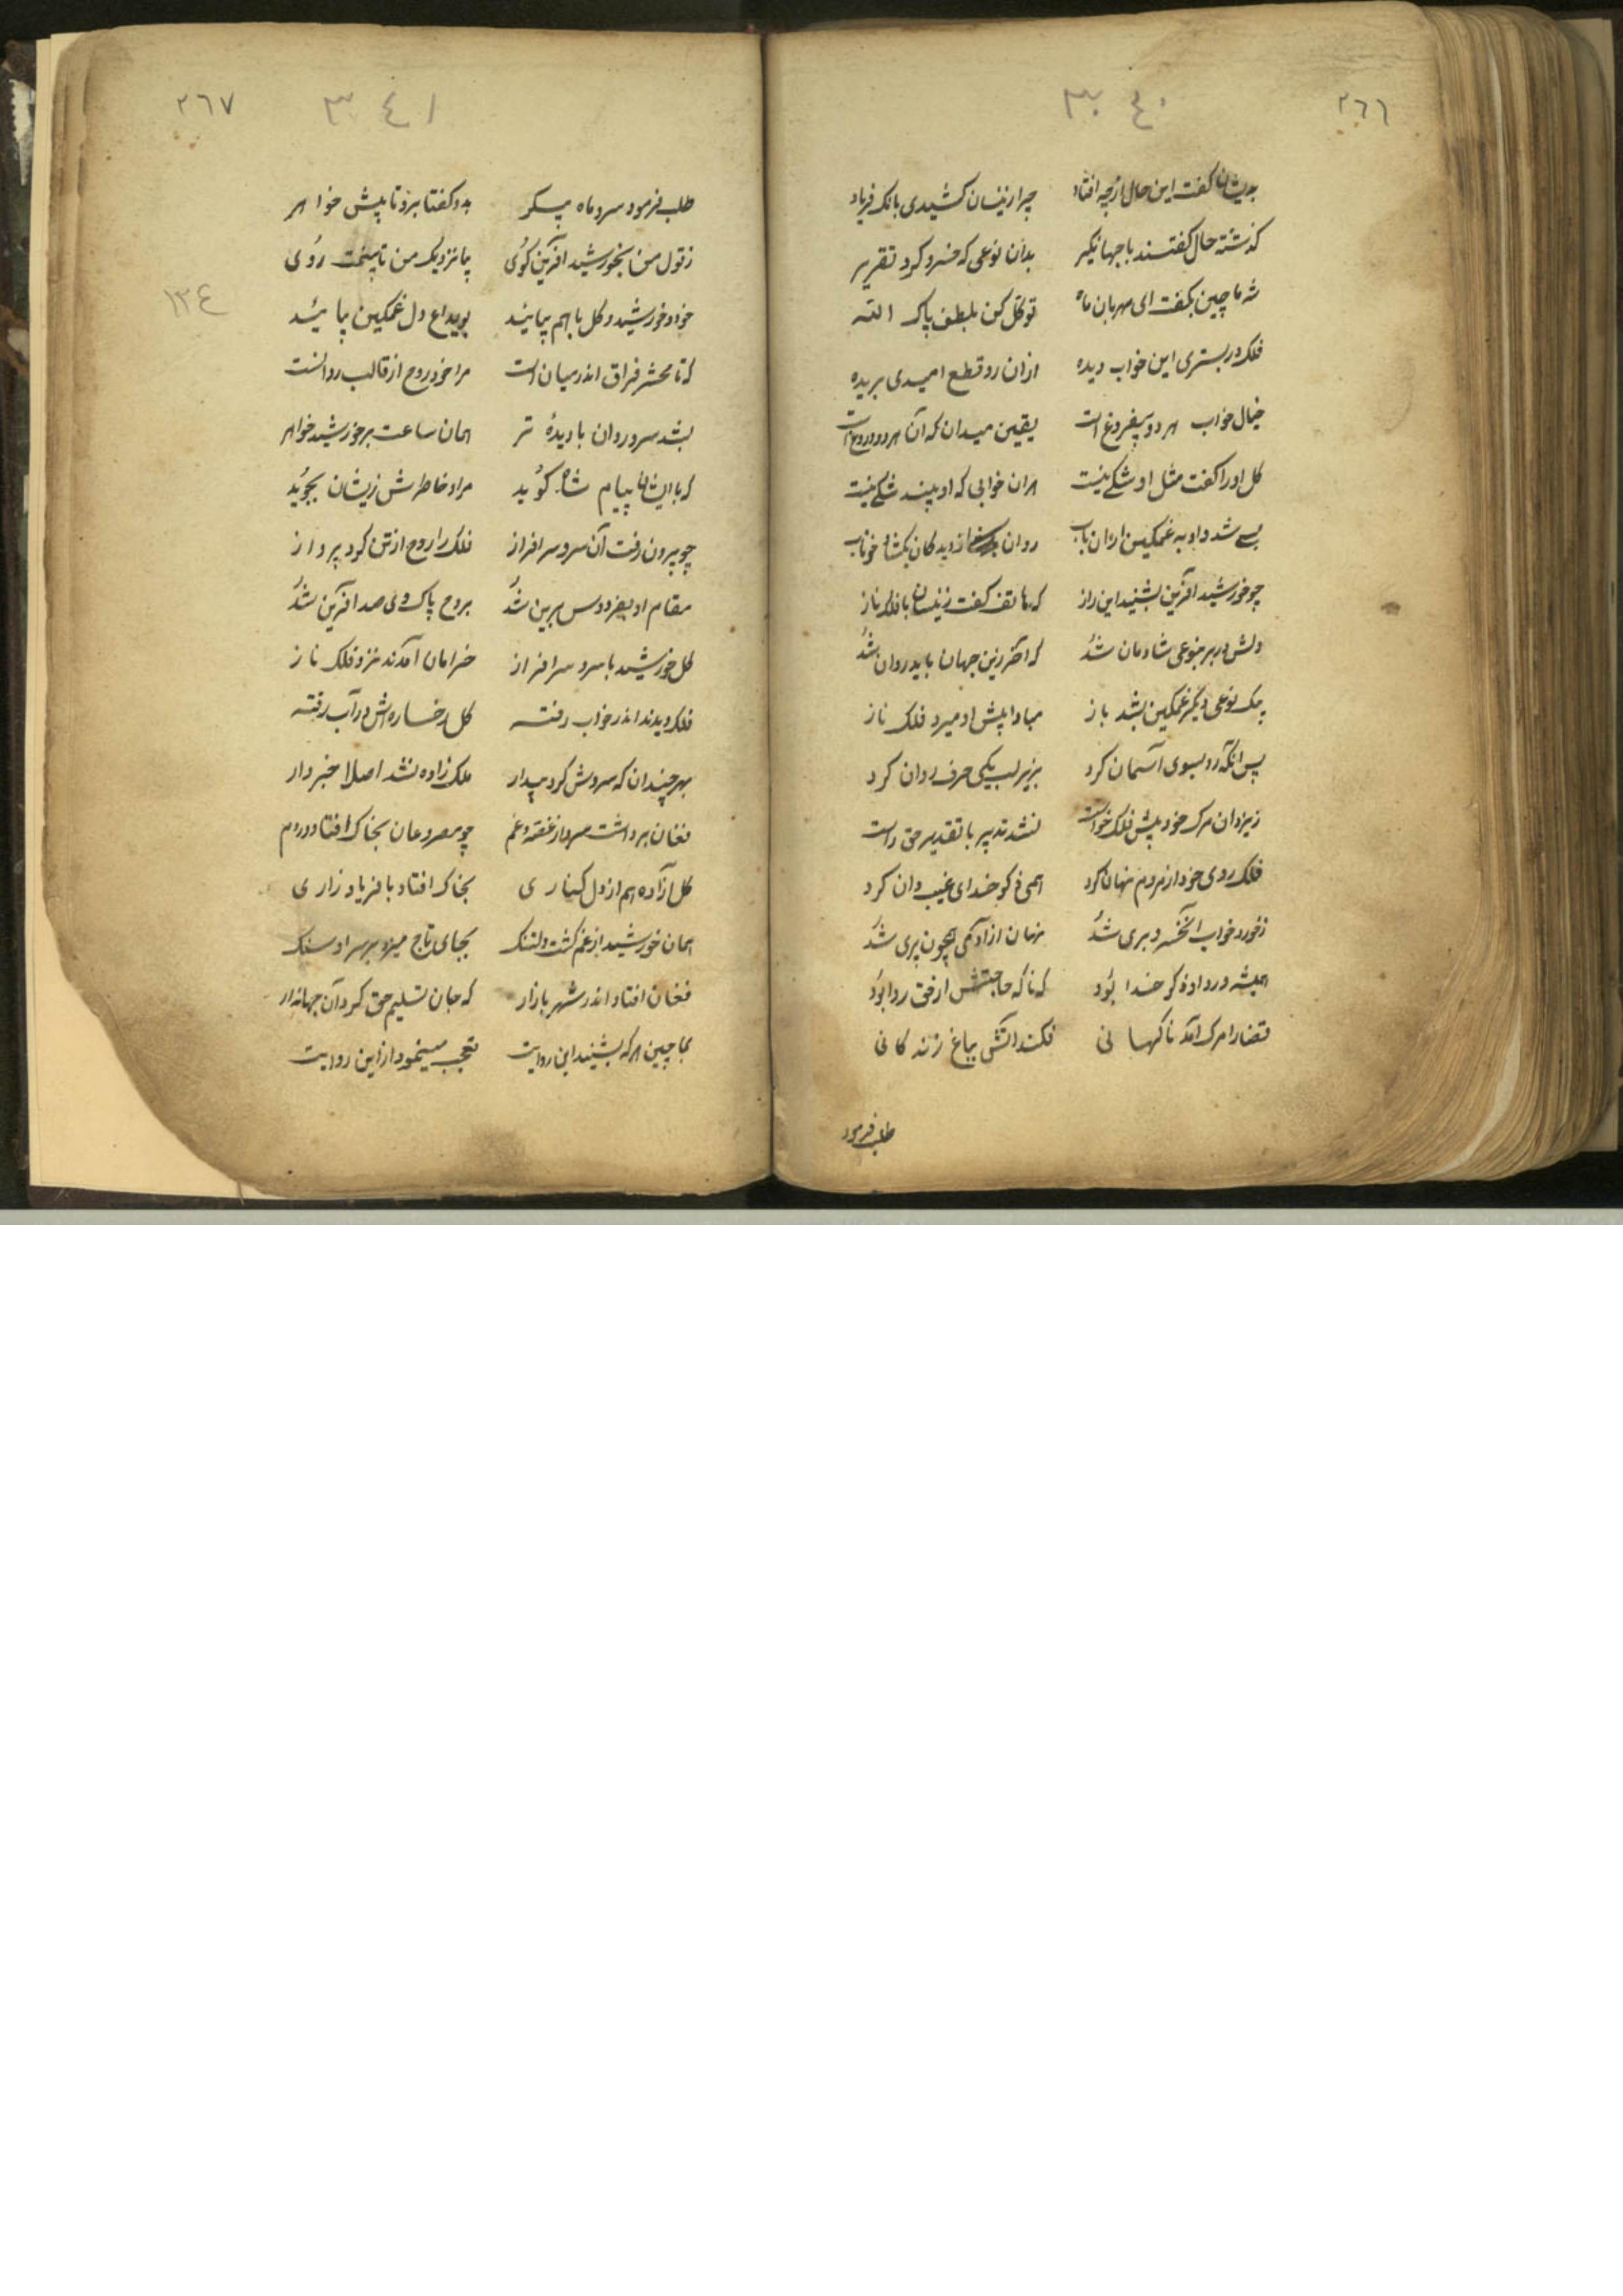 ٢٦٦
٣٤٠
بدیشان کفت این حال از چه افتاد چرا زینسان کشیدی بانک فریاد
کذشته حال کفتند با جهانکیر بدان نوعی که خسرو کرد تقریر
شه ماچین بکفت ای مهربان ماه توکل کن بلطف پاک الله
فلک در بستری این خواب دیده ازان رو قطع امیدی بریده
خیال خواب هر دو بیفروغ است یقین میدان که آن هر دو دروغ است
کل او را کفت مثل او شکی نیست هران خوابی که او بیند شکی نیست
بسی شد داو به غمکین ازان باب روان از دیدکان بکشاد خوناب
چو خورشید آفرین بشنید این راز که هاتف کفت زینسان با فلک ناز
دلش در بر بنوعی شادمان شد که آخر زین جهان باید روان شد
بیک نوعی دیکر غمکین بشد باز مبادا پیش او میرد فلک ناز
پس آنکه رو بسوی آسمان کرد بزیر لب یکی حرف روان کرد
زیزدان مرک خود پیش فلک خواست نشد تدبیر با تقدیر حق راست
فلک روی خود از مردم نهان کرد همی ذکر خدای غیب دان کرد
ز خورد خواب آنخسرو بری شد نهان از آدمی همچون پری شد
همیشه ورد او ذکر خدا بود که ناکه حاجتش از حق روا بود
قضارا مرک آمد ناکهانی فکند آتش بباغ زندکانی
طلب فرمود
٢٦٧
٣٤١
١٣٤
طلب فرمود سرو ماه پیکر بدو کفتا برو تا پیش خواهر
ز قول من بخورشید آفرین کوی بیا نزدیک من تا بینمت روی
خود و خورشید و کل با هم بیائید بویداع دل غمکین بیائید
که تا محشر فراق اندر میان است مرا خود روح از قالب روانست
بشد سرو روان با دیدهٔ تر همان ساعت بر خورشید خواهر
که با ایشان پیام شاه کوید مراد خاطرش زیشان بجوید
چو بیرون رفت آن سرو سرافراز فلک را روح از تن کرد پرواز
مقام او بفردوس برین شد بروح پاک وی صد آفرین شد
کل خورشید با سرو سرافراز خرامان آمدند نزد فلک ناز
فلک دیدند اندر خواب رفته کل رخساره اش در آب رفته
بهر چندان که سروش کرد بیدار ملک زاده نشد اصلا خبردار
فغان برداشت سرو از غصه و غم چو مصروعان بخاک افتاد دردم
کل آزاده هم از دل کناری بخاک افتاد با فریاد زاری
همان خورشید از غم کشت دلتنک بجای تاج میزد بر سر او سنک
فغان افتاد اندر شهر بازار که جان تسلیم حق کرد آن جهاندار
بماچین هر که بشنید این روایت تعجب مینمود از این روایت